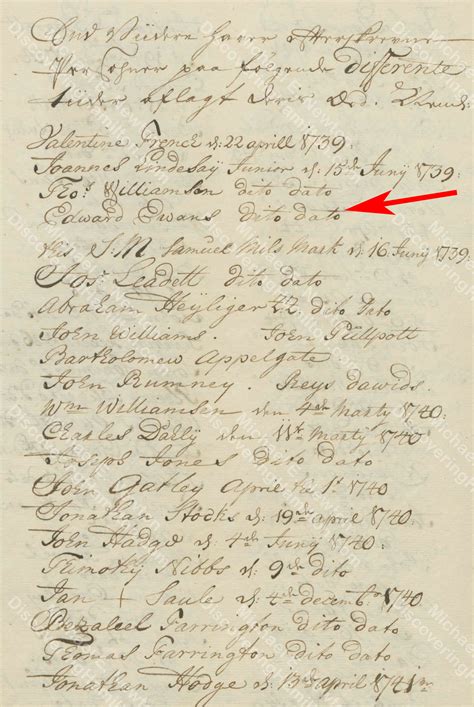 End Viidere haver efterskrevne
Per sohner paa følgende differente
tiider aflagt deris Æd. Nembl:
Valentine French d: 22 aprill 1739:
Joannes Lindesay Junior d: 15th Juny 1739:
Tho.s Williamson dito dato
Edward Ewans dito dato
His S.M Samuel Mils Mark d: 16 Juny 1739:
Jos: Leadett dito dato
Abraham Heyliger dito dato
John Williams. John Püllpott
Bartholomew Appelgate
John Rumney. Reys dawids.
Wm Williamsen den 4de Marty 1740:
Charles Daily den 11te Marty 1740
Joseph Jones dito dato
John Gatley April die 1st 1740
Jonathan Stocks d: 19de april 1740:
John Hadge d: 4de Juny 1740:
Thimothy Nibbs d: 9de dito
Jan + Saule d: 4de decemb.r 1740:
Bezaleel Farrington dito dato
Thomas Farrington dito dato
Jonathan Hodge d: 13de april 1741